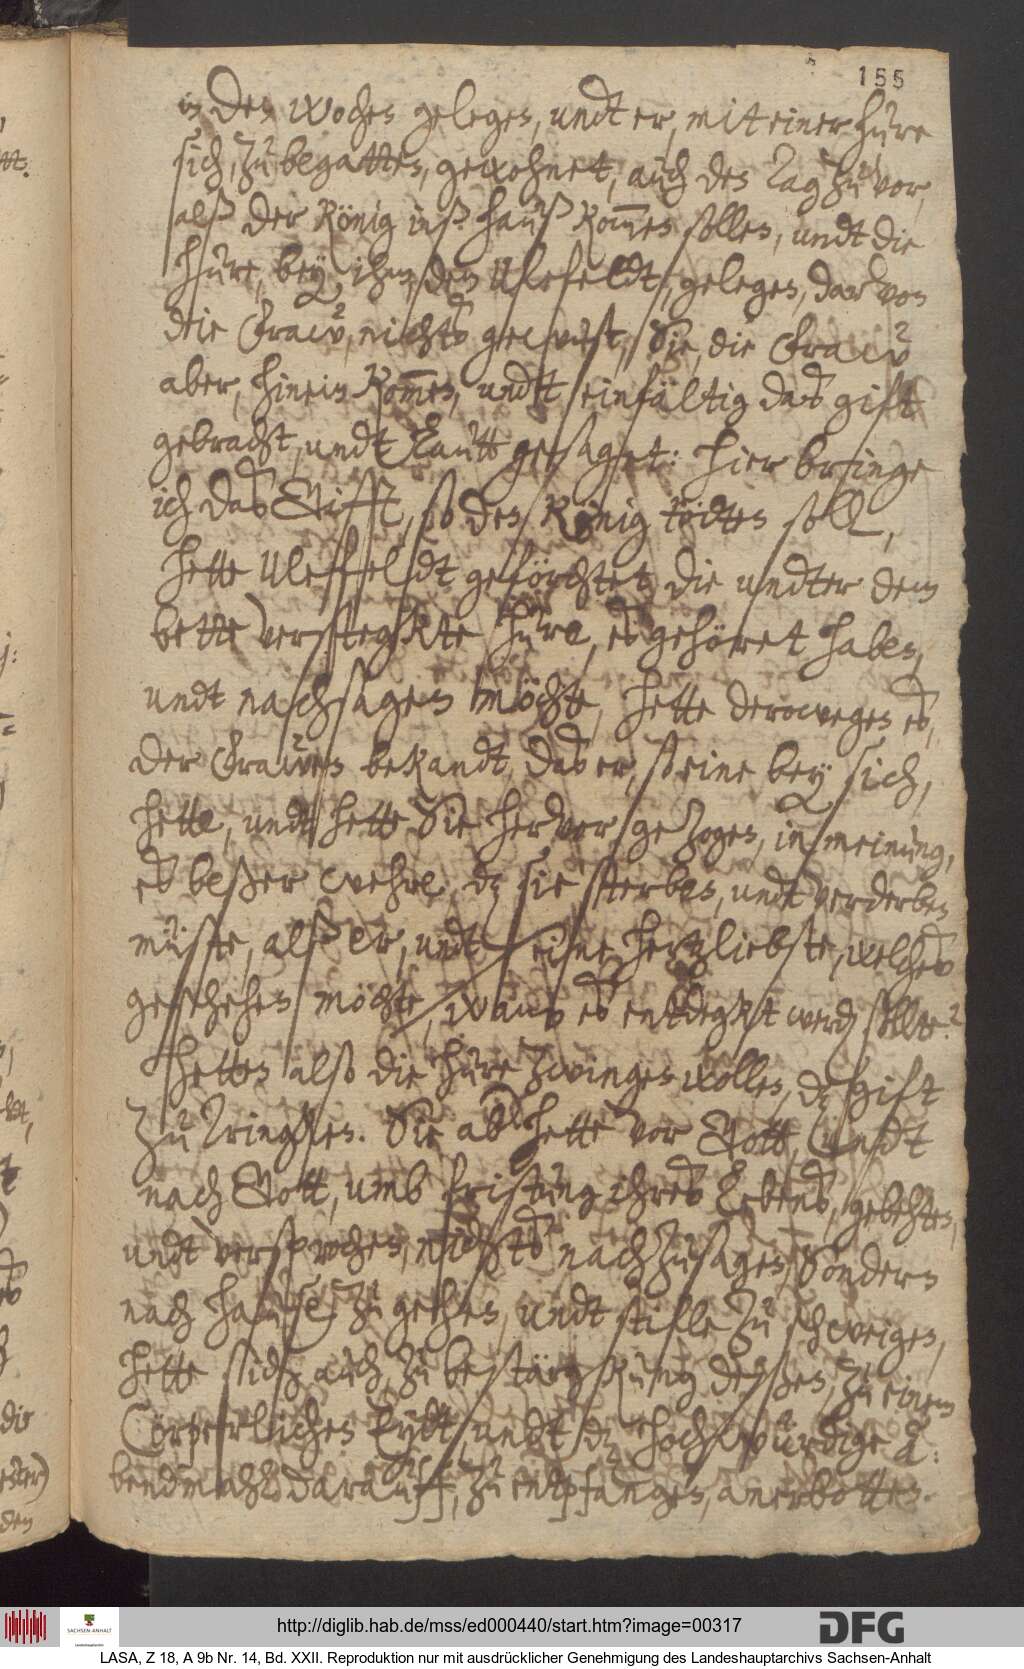 155
in den wochen gelegen, undt er, mit einer hure
sich, zu begatten, gewohnet, auch den Tag zuvor,
alß der König inß hauß kom̄en sollen, undt die
hure, bey ihm, dem Ulefeldt, gelegen, darvon
die Fraw, nichts gewust, Sie, die Fraw
aber, hinein kom̄en, undt einfältig das gift
gebracht, undt lautt gesaget: hier bringe
ich das Gifft, so den König tödten soll,
hette Uleffeldt geförchtet, die undter dem
bette versteckte hure, es gehöret haben,
undt nachsagen möchte, hette derowegen es,
der Frawen bekandt, das er, so eine bey sich,
hette, undt hette Sie hervor gezogen, in meinung,
es beßer wehre, dz sie sterben, undt verderben
müste, alß er, undt seine hertzliebste, welches
geschehen möchte, wann es entdeckt werden sollte.
hetten also die hure zwingen wollen, dz gift
zu Trincken. Sie aber hette vor Gott, undt
nach Gott, umb fristung ihres Lebens, gebehten,
undt versprochen, nichts nachzusagen, Sondern
nach hause zu gehen, undt stille zu schweigen,
hette sich auch, zu bestärckung deßen, zu einem
Cörperlichen Eydt, undt dz hochwürdige A:
bendmahl darauff, zu entpfangen, anerbotten.
tt.
die
den
http://diglib.hab.de/mss/ed000440/start.htm?image=00317
SACHSEN-ANHALT
DFG
LASA, Z 18, A 9b Nr. 14, Bd. XXII. Reproduktion nur mit ausdrücklicher Genehmigung des Landeshauptarchivs Sachsen-Anhalt